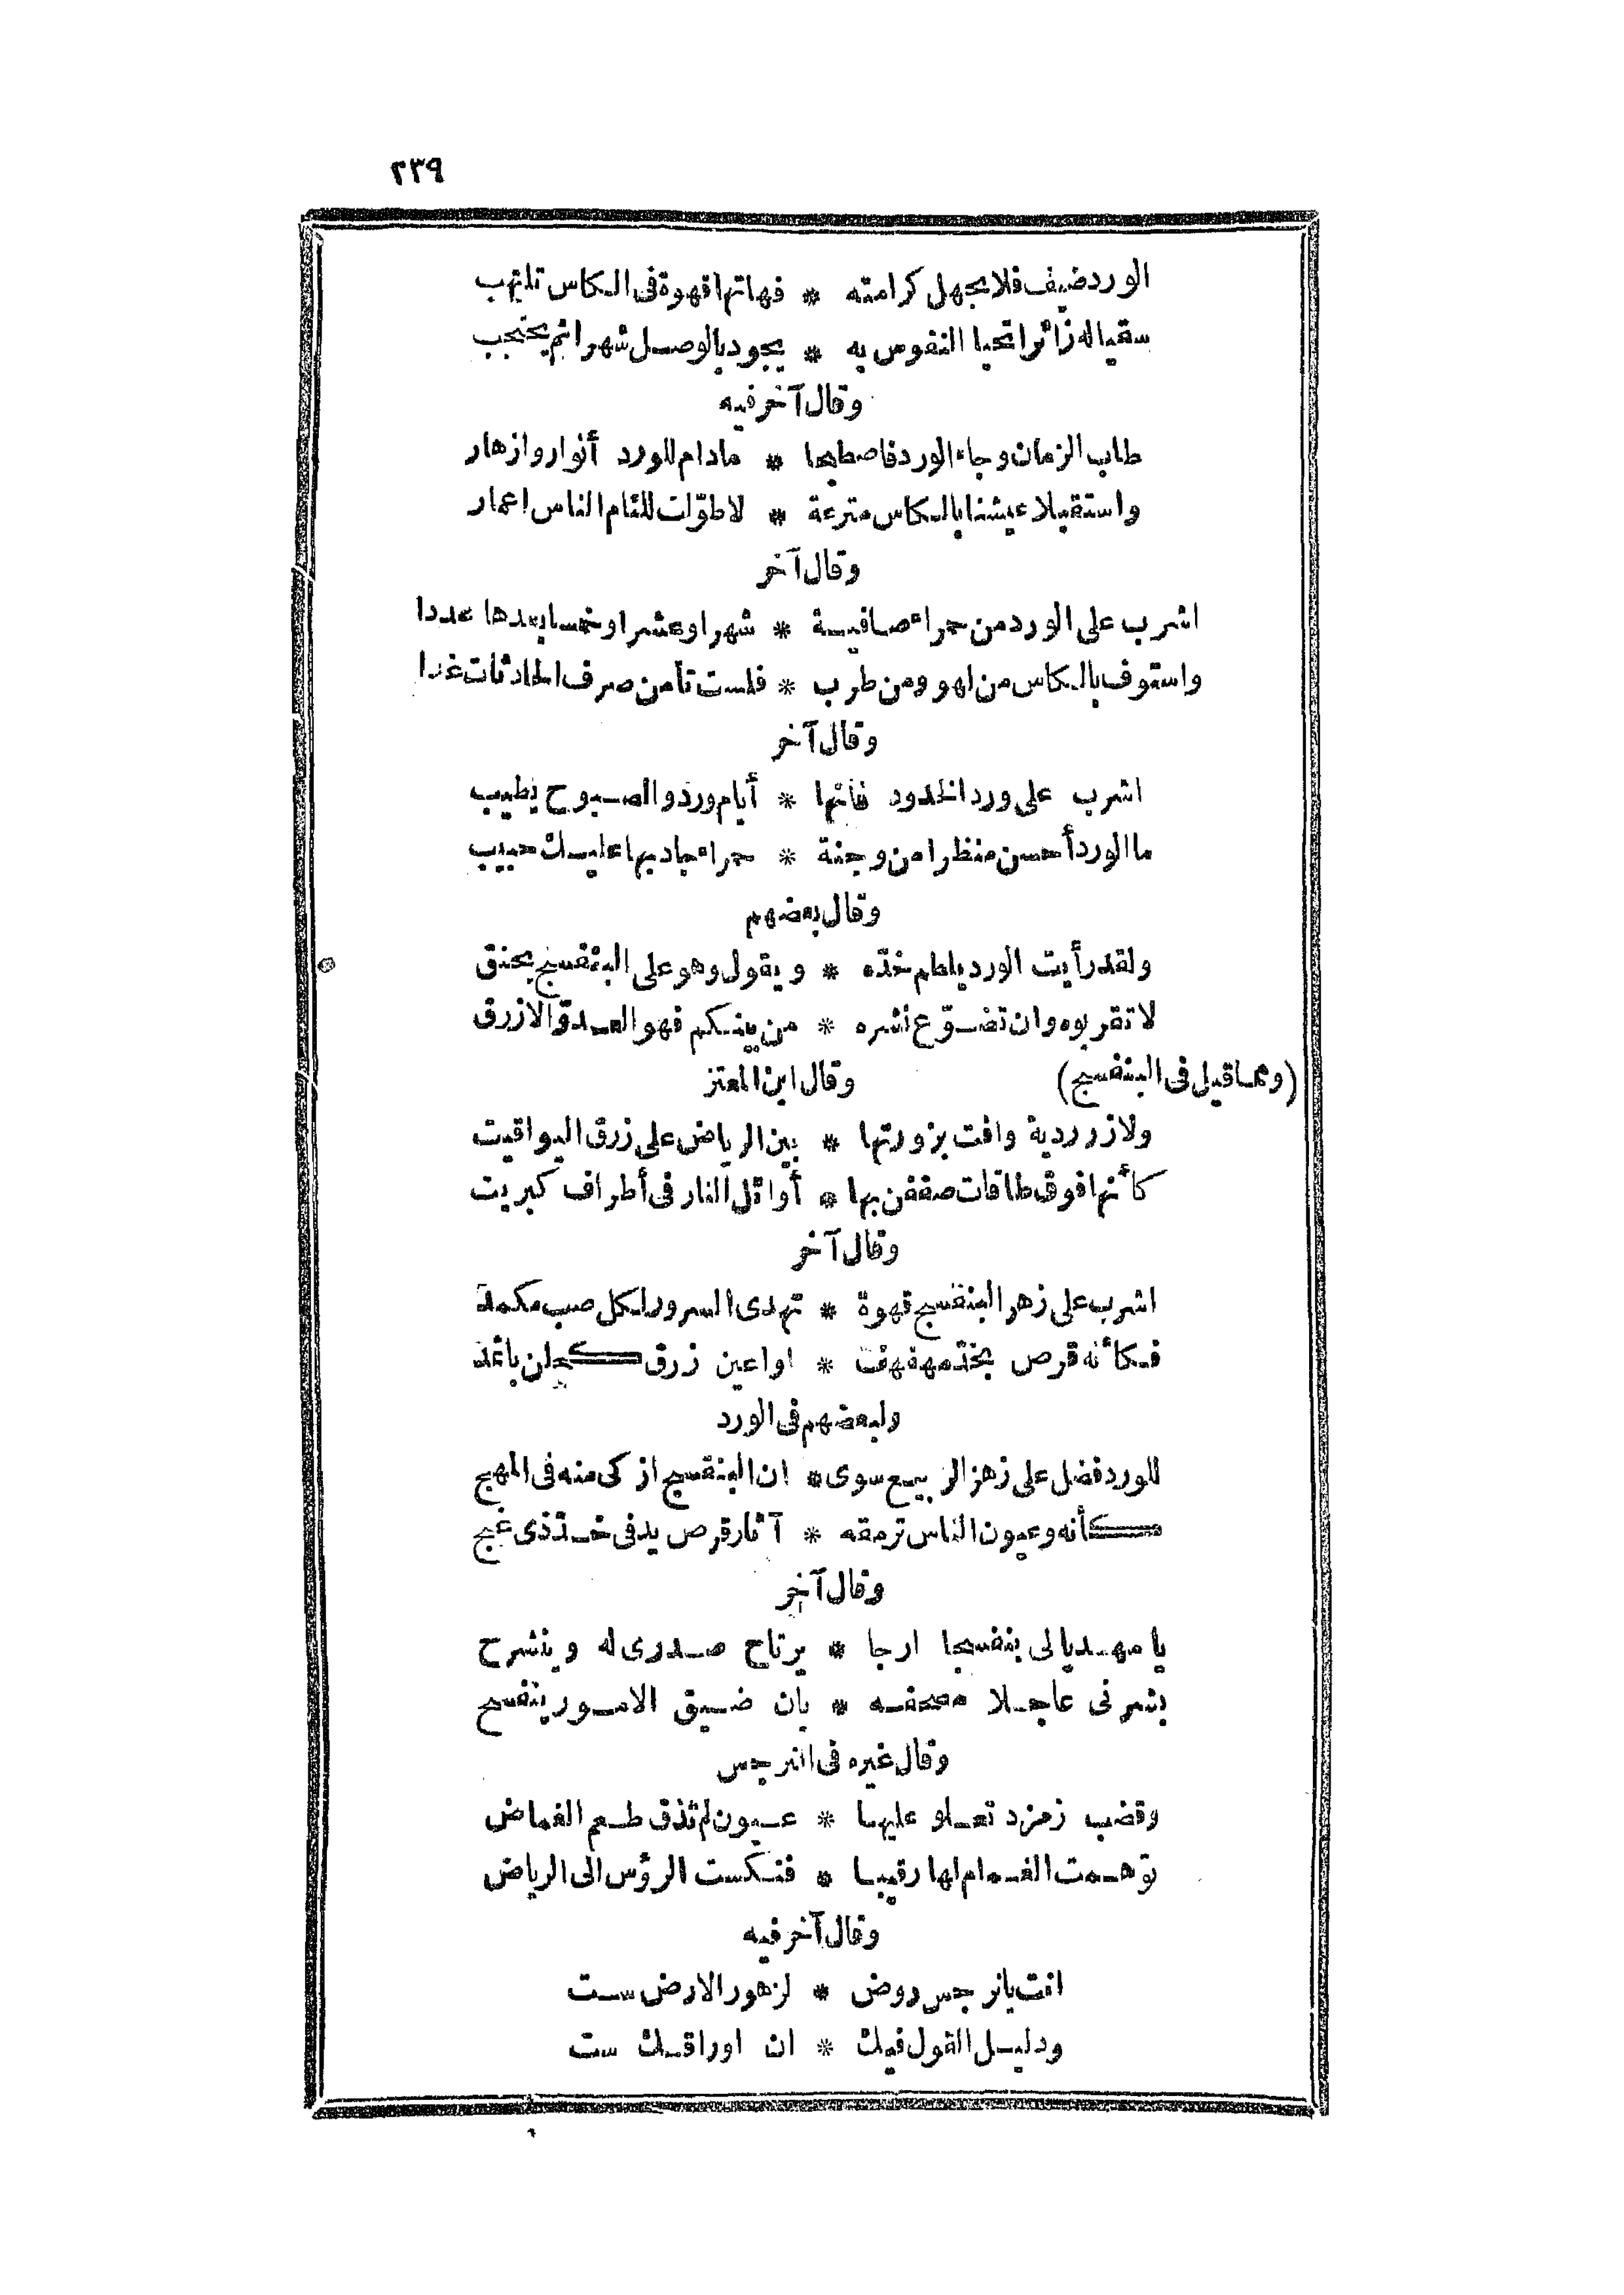 ٢٣٩
الورد ضيف فلا يجهل كرامته * فهاتها قهوة فى الكاس تلتهب
سقياله زائرا تحيا النفوس به * يجود بالوصل شهرا ثم يحتجب
وقال آخر فيه
طاب الزمان وجاء الورد فاصطبحا * مادام للورد أنوار وازهار
واستقبلا عيشنا بالكاس مترعة * لا طوّلت للئام الناس اعمار
وقال آخر
اشرب على الورد من حمراء صافية * شهرا وعشرا وخمسا بعدها عددا
واستوف بالكاس من لهو ومن طرب * فلست تأمن صرف الحادثات غدا
وقال آخر
اشرب على ورد الخدود فانها * أيام ورد والصبوح يطيب
ما الورد أحسن منظرا من وجنة * حمراء جاد بها عليك حبيب
وقال بعضهم
ولقد رأيت الورد يلطم خدّه * ويقول وهو على البنفسج يحنق
لا تقربوه وان تضوّع نشره * من بينكم فهو العدوّ الازرق
(ومما قيل فى البنفسج) وقال ابن المعتز
ولازوردية وافت بزورتها * بين الرياض على زرق اليواقيت
كأنها فوق طاقات صففن بها * أوائل النار فى أطراف كبريت
وقال آخر
اشرب على زهر البنفسج قهوة * تهدى السرور لكل صب مكمد
فكأنه قرص بخدّ مهفهف * او اعين زرق كحلن باثمد
ولبعضهم فى الورد
للورد فضل على زهر الربيع سوى * ان البنفسج ازكى منه فى المهج
كأنه وعيون الناس ترمقه * آثار قرص يد فى خدّ ذى غنج
وقال آخر
يا مهديا لى بنفسجا ارجا * يرتاح صدرى له وينشرح
بشرنى عاجلا مصحفه * بان ضيق الامور ينفسح
وقال غيره فى النرجس
وقضب زمرد تعلو عليها * عيون لم تذق طعم الغماض
توهمت الغمام لها رقيبا * فنكست الرؤس الى الرياض
وقال آخر فيه
انت يا نرجس روض * لزهور الارض ست
ودليل القول فيك * ان اوراقك ست